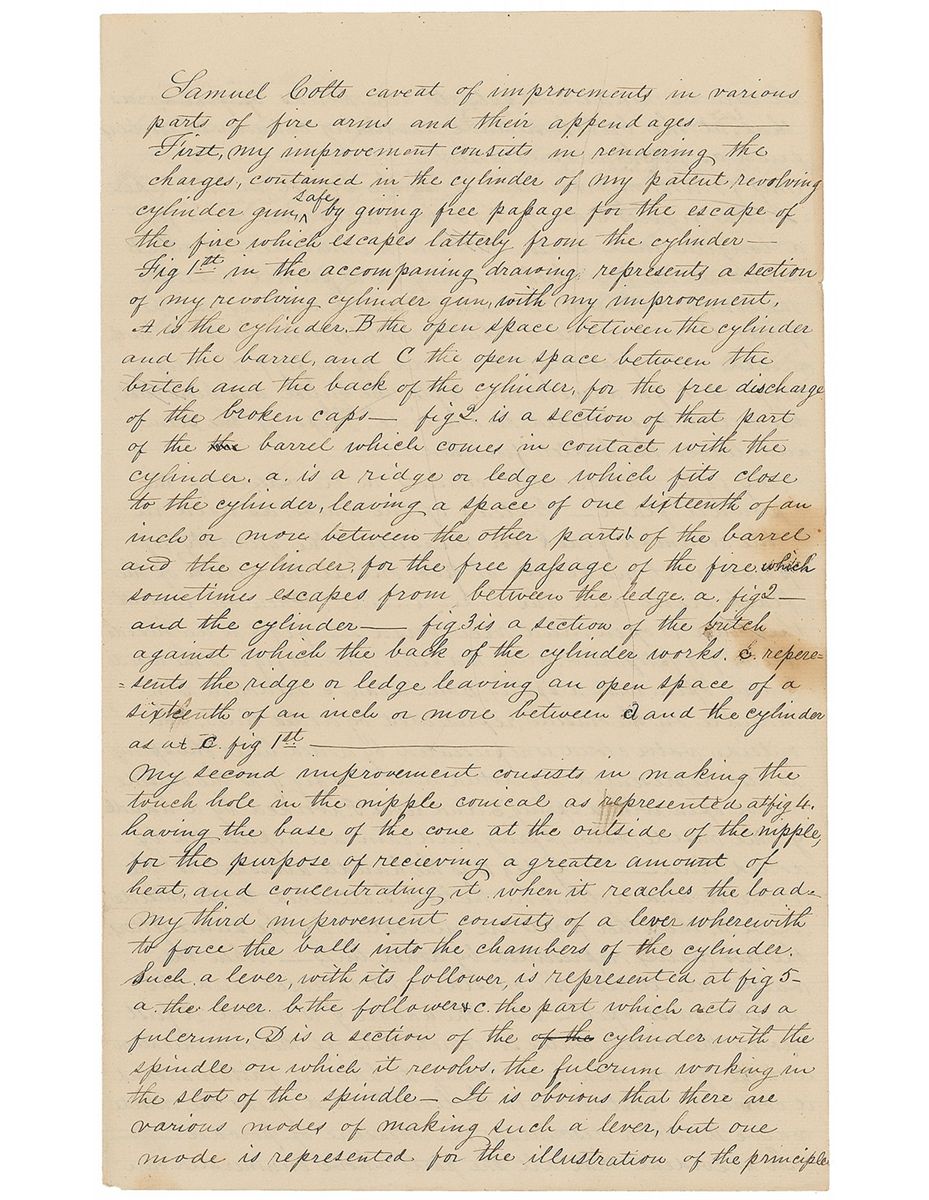 Samuel Colts caveat of improvements in various
parts of fire arms and their appendages —
First, my improvement consists in rendering the
charges, contained in the cylinder of my patent revolving
cylinder gun, safe by giving free passage for the escape of
the fire which escapes latterly from the cylinder —
Fig 1st in the accompaning drawing, represents a section
of my revolving cylinder gun, with my improvement.
A is the cylinder. B the open space between the cylinder
and the barrel, and C the open space between the
britch and the back of the cylinder, for the free discharge
of the broken caps — fig 2. is a section of that part
of the the barrel which comes in contact with the
cylinder. a. is a ridge or ledge which fits close
to the cylinder, leaving a space of one sixteenth of an
inch or more between the other parts of the barrel
and the cylinder, for the free passage of the fire which
sometimes escapes from between the ledge. a. fig 2 —
and the cylinder — fig 3 is a section of the britch
against which the back of the cylinder works. c. repere=
=sents the ridge or ledge leaving an open space of a
sixteenth of an inch or more between d and the cylinder
as at C. fig 1st —
My second improvement consists in making the
touch hole in the nipple conical as represented at fig 4.
having the base of the cone at the outside of the nipple,
for the purpose of recieving a greater amount of
heat, and concentrating it when it reaches the load =
My third improvement consists of a lever wherewith
to force the balls into the chambers of the cylinder.
Such a lever, with its follower, is represented at fig 5 —
a. the lever. b. the follower & c. the part which acts as a
fulcrum, D is a section of the of the cylinder with the
spindle on which it revolvs. the fulcrum working in
the slot of the spindle — It is obvious that there are
various modes of making such a lever, but one
mode is represented for the illustration of the principle